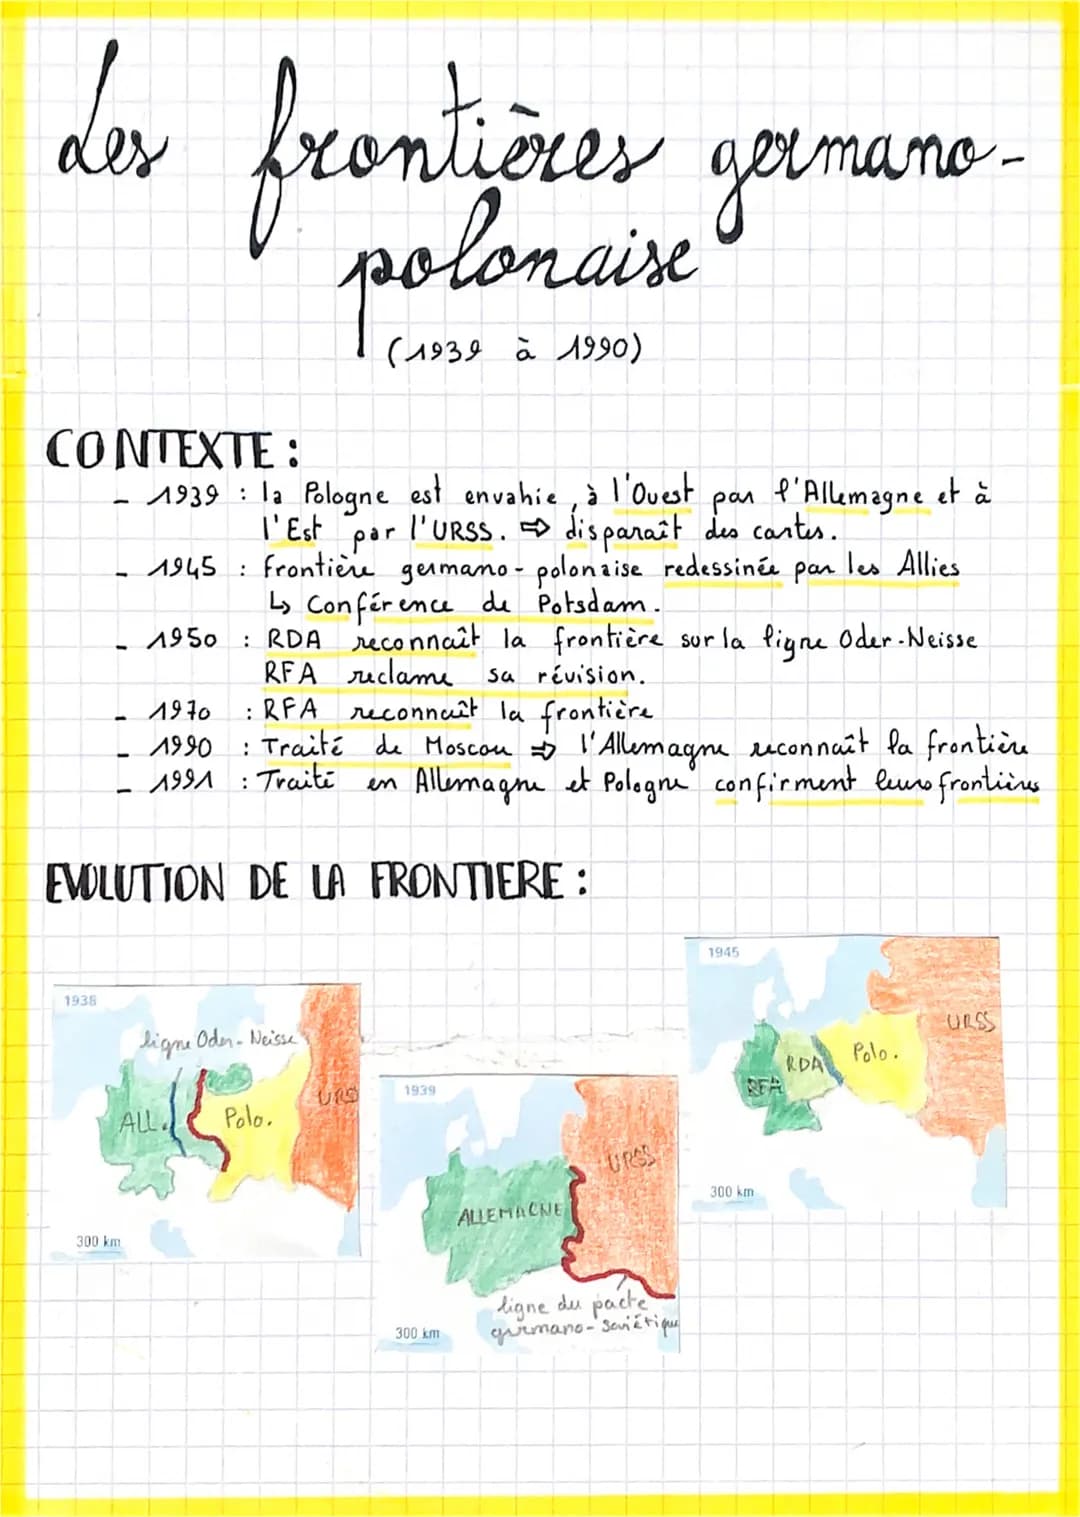 Les frontières germano-
polonaise
(1939 à 1990)
CONTEXTE :
- 1939 : la Pologne est envahie, à l'Ouest par l'Allemagne et à
l'Est par l'URSS. ⇒ disparaît des cartes.
- 1945 : frontière germano-polonaise redessinée par les Allies
↳ Conférence de Potsdam.
- 1950 : RDA reconnaît la frontière sur la ligne Oder-Neisse
RFA reclame sa révision.
- 1970 : RFA reconnaît la frontière
- 1990 : Traité de Moscou ⇒ l'Allemagne reconnaît la frontière
- 1991 : Traité en Allemagne et Pologne confirment leurs frontières
EVOLUTION DE LA FRONTIERE :
1938
ligne Oder-Neisse
ALL.
Polo.
URS
300 km
1939
URSS
ALLEMAGNE
ligne du pacte
germano-soviétique
300 km
1945
URSS
Polo.
RDA
RFA
300 km